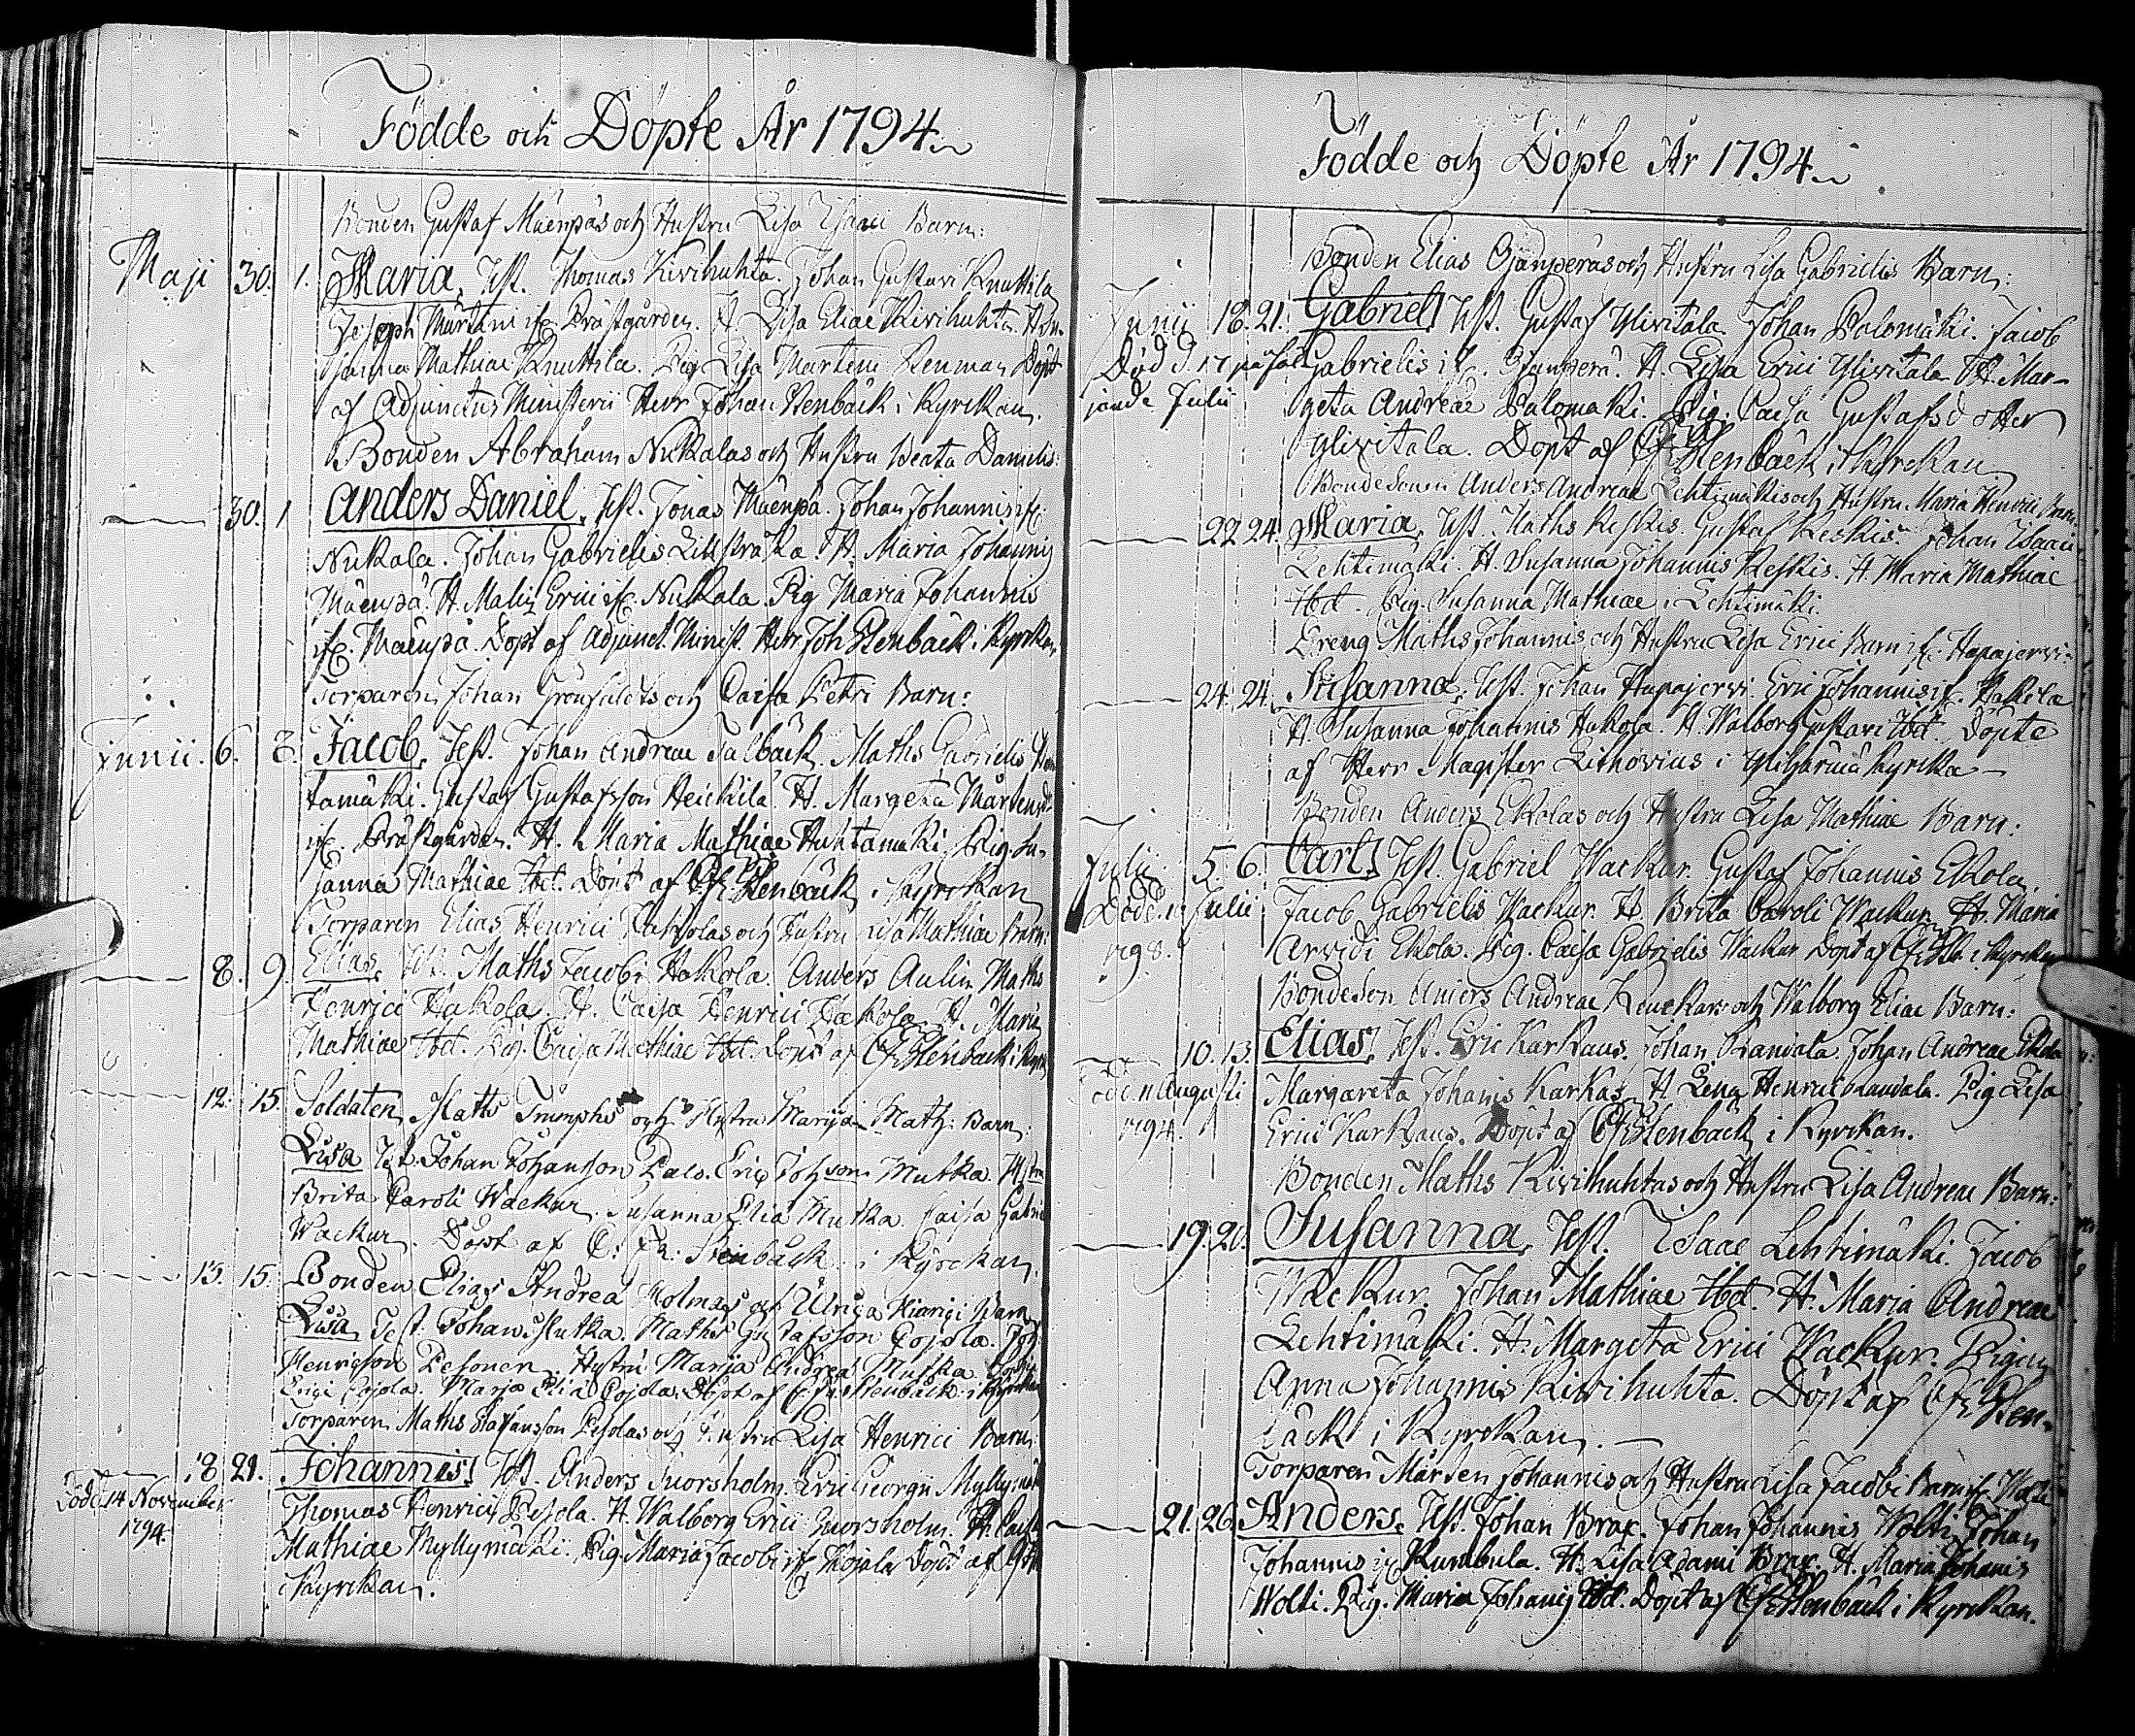 Födde och Döpte År 1794.
Bonden Gustaf Mäenpäs och Hustru Lisa Isaaci Barn:
Maji 30. 1. Maria. Test. Thomas Kivihuhta. Johan Gustavi Knuttila
Joseph Mårteni if. Prästgården. H. Lisa Eliae Kivihuhta. H. Su-
sanna Mathiae Knuttila. Pig. Lisa Marteni Renman Döpt
af Adjunctus Ministerii Herr Johan Stenbäck i Kyrckan.
Bonden Abraham Nukalas och Hustru Beata Danielis:
30. 1 Anders Daniel. Test. Jonas Mäenpä. Johan Johannis if.
Nukala. Johan Gabrielis Lillstråka. H. Maria Johannis
Mäenpä. H. Malin Erici if. Nukala. Pig Maria Johannis
if. Mäenpä. Döpt af Adjunct. Minist. Herr Joh Stenbäck i Kyrkan.
Torparen Johan Grönfuldts och Caisa Petri Barn:
Junii. 6. 8. Jacob. Test. Johan Andreae Salbäck. Maths Gabrielis
tamäki. Gustaf Gustafsson Heickilä. H. Margeta Mårtensdr
if. Prästgården. H. Maria Mathiae Huhtamäki. Pig. Su-
sanna Mathiae Ibd. Döpt af C. Fr. Stenbäck i Kyrckan
Torparen Elias Henrici Hakolas och Hustru Lisa Mathiae Barn:
8. 9. Elias. Test. Maths Jacobi Hakola. Anders Aulin Maths
Henrici Hakola. H. Caisa Henrici Hakola. H. Maria
Mathiae Ibd. Pig. Caisa Mathiae Ibd. Döpt af C. Fr. Stenbäck i Kyrk
12. 15. Soldaten Matts Triumphs och Hustru Marija Math: Barn:
Lisa Test. Johan Johansson Palo. Eric Johsson Mutka. Hustru
Brita Caroli Wackur. Susanna Elia Mutka. Caisa Gabri
Wackur. Döpt af C: Fr: Stenbäck i Kyrckan
13. 15. Bonden Elias Andrea Holmas och Ulrica Hinrici Barn
Lisa Test. Johan Mutka. Maths Gustafsson Pojola. Joh
Henricson Pesonen. Hustru Marija Andrea Mutka.
Erici Pojola. Marja Elia Pojola. Döpt af C: Fr: Stenbäck i Kyrckan
Torparen Maths Staffansson Pesolas och Hustru Lisa Henrici Barn:
18 29. Johannis. Test. Anders Tuorsholm. Eric Georgii Myllymäki
Död 14 November Thomas Henrici Pesola. H. Walborg Erici Tuorsholm. H. Caisa
1794. Mathiae Myllymäki. Pig. Maria Jacobi if. Pojola Döpt af C. Fr
i Kyrckan.
Födde och Döpte År 1794.
Bonden Elias Ojanperäs och Hustru Lisa Gabrielis Barn:
Junii 18. 21. Gabriel. Test. Gustaf Ylivitala. Johan Palomäki. Jacob
Död d. 17 påföl Gabrielis if. Ojanperä. H. Lisa Erici Ylivitala. H. Mar-
jande Julii geta Andreae Palomäki. Pig. Caisa Gustafsdotter
Ylivitala. Döpt af C. Fr. Stenbäck i Kyrckan
Bondesonen Anders Andreae Lehtimäkis och Hustru Maria Henrici Barn:
22 24. Maria. Test. Maths Keskis. Gustaf Keskis. Johan Isaaci
Lehtimäki. H. Susanna Johannis Keskis. H. Maria Mathiae
Ibd. Pig. Susanna Mathiae Lehtimäki.
Dreng Maths Johannis och Hustru Lisa Erici Barn if. Hapajervi.
24. 24. Susanna. Test. Johan Hapajervi. Eric Johannis if. Hakola
H. Susanna Johannis Hakola. H. Walborg Gustavi Ibd. Döpte
af Herr Magister Lithovius i Ylihärmä Kyrcka
Bonden Anders Ekolas och Hustru Lisa Mathiae Barn:
Julii 5. 6. Carl. Test. Gabriel Wackur. Gustaf Johannis Ekola
Död d. Julii Jacob Gabrielis Wackur. H. Brita Caroli Wackur. H. Maria
1798. Arvidi Ekola. Pig. Caisa Gabrielis Wackur. Döpt af C. Fr. Stb. i Kyrckan
Bondeson Anders Andreae och Walborg Eliae Barn:
10. 13. Elias. Test. Eric Karkaus. Johan Randala. Johan Andreae Ekola
Död Augusti Margareta Johanis Karkas. H. Lena Henrici Randala. Pig Lisa
1794. Erici Karkaus. Döpt af C. Fr. Stenback i Kyrckan.
Bonden Maths Kivihuhtas och Hustru Lisa Andreae Barn:
19. 20. Susanna. Test. Isaac Lehtimäki. Jacob
Wackur. Johan Mathiae Ibd. H. Maria Andreae
Lehtimäki. H. Margeta Erici Wackur. Pigan
Anna Johannis Kivihuhta. Döpt af C. Fr. Sten-
bäck i Kyrckan.
Torparen Mårten Johannis och Hustru Lisa Jacobi Barn if. Wolti
21. 26. Anders. Test. Johan Brax. Johan Johannis Wolti. Johan
Johannis if. Kumbula. H. Lisa Adami Brax. H. Maria Johanis
Wolti. Pig. Maria Johanis Ibd. Döpt af C. Fr. Stenbäck i Kyrckan.